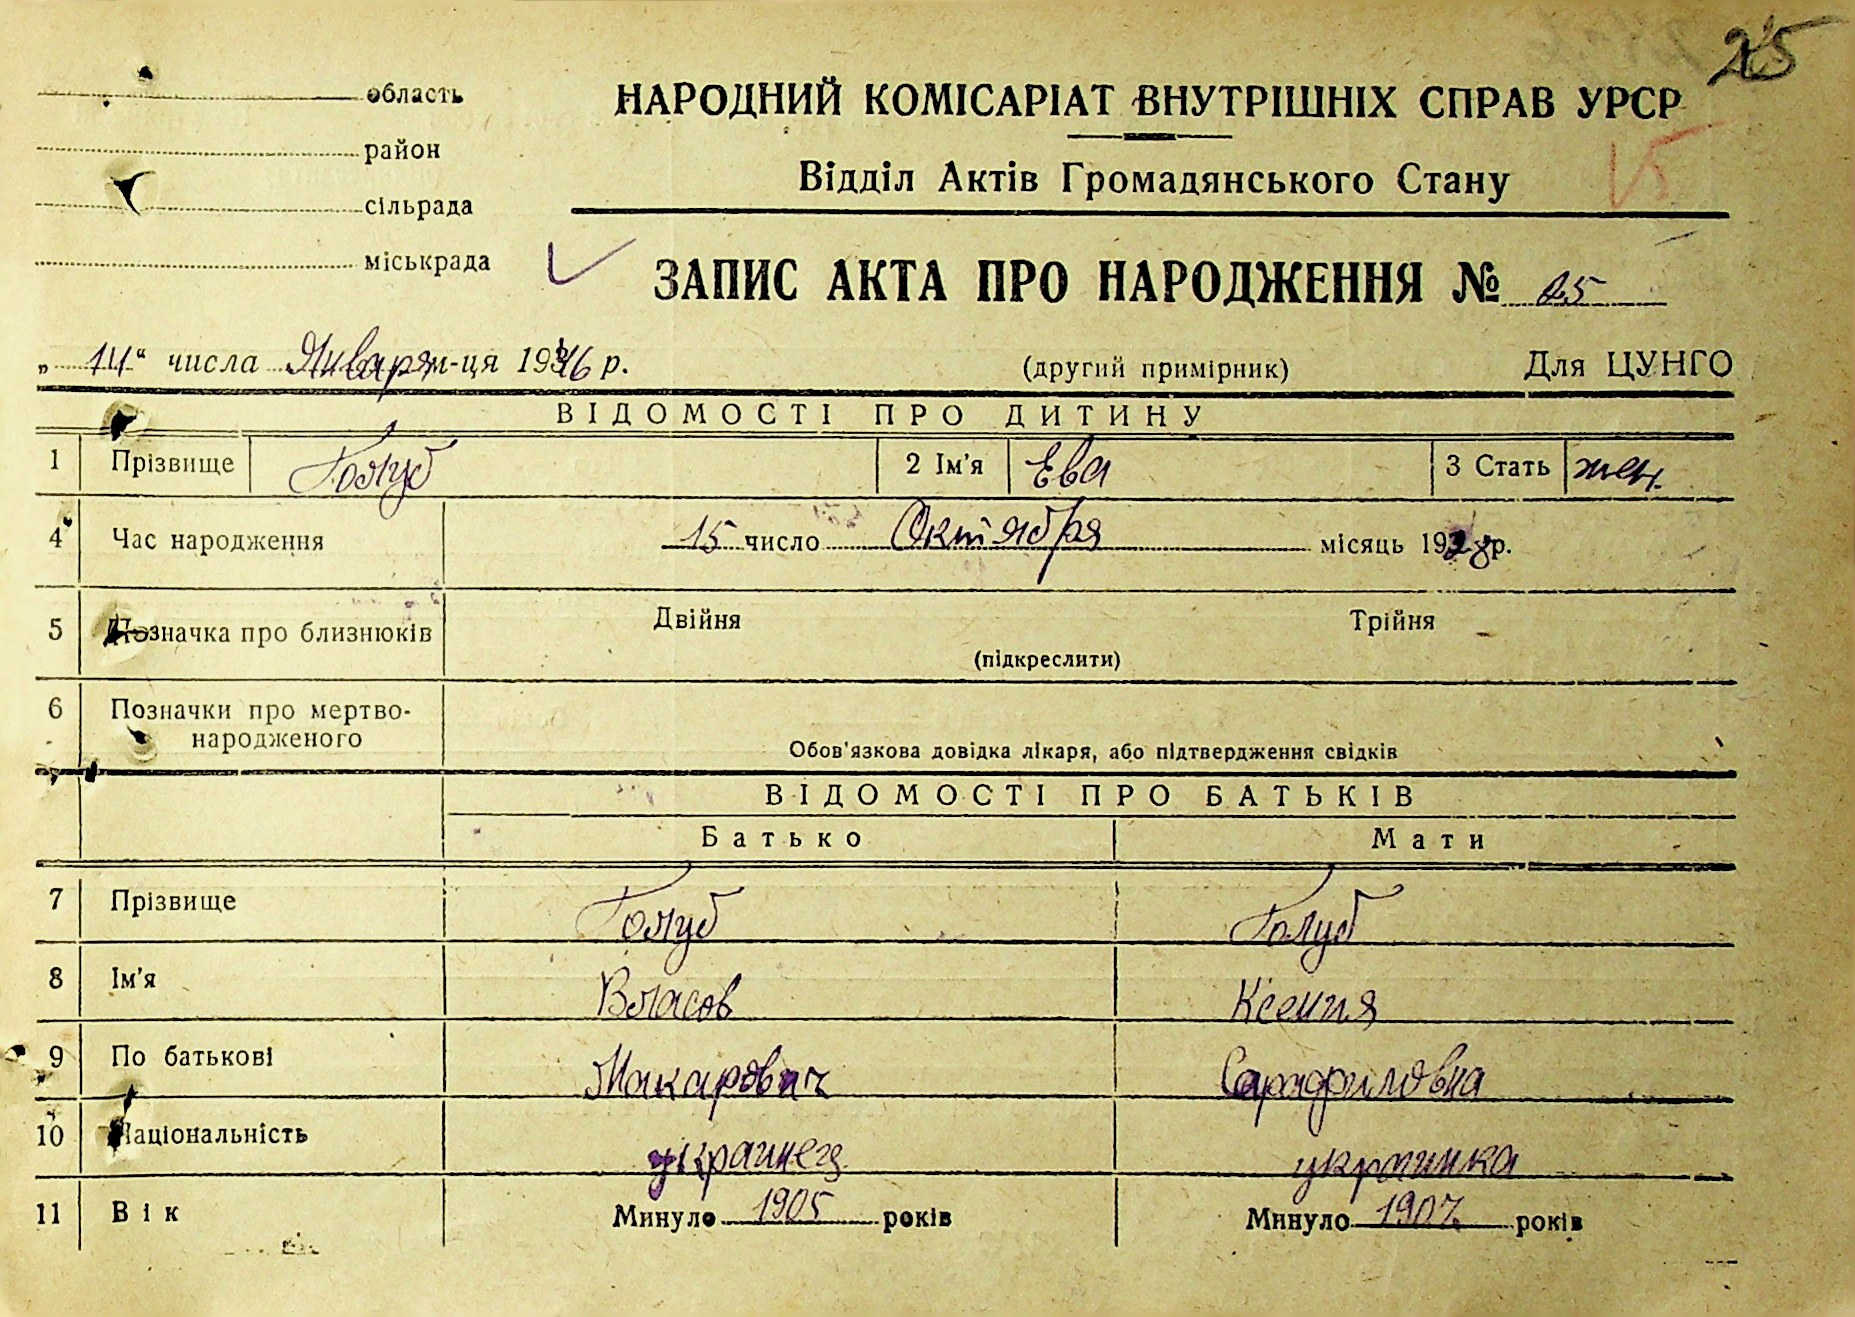 25
область
НАРОДНИЙ КОМІСАРІАТ ВНУТРІШНІХ СПРАВ УРСР
район
Відділ Актів Громадянського Стану
сільрада
міськрада
ЗАПИС АКТА ПРО НАРОДЖЕННЯ № 25
„14“ числа Января м-ця 1946 р. (другий примірник) Для ЦУНГО
ВІДОМОСТІ ПРО ДИТИНУ
1 Прізвище Голуб 2 Ім'я Ева 3 Стать жен.
4 Час народження 15 число Октября місяць 1928 р.
5 Позначка про близнюків Двійня Трійня
(підкреслити)
6 Позначки про мертво-
народженого
Обов'язкова довідка лікаря, або підтвердження свідків
ВІДОМОСТІ ПРО БАТЬКІВ
Батько Мати
7 Прізвище Голуб Голуб
8 Ім'я Власов Ксения
9 По батькові Макарович
10 Національність украинец украинка
11 Вік Минуло 1905 років Минуло 1907 років